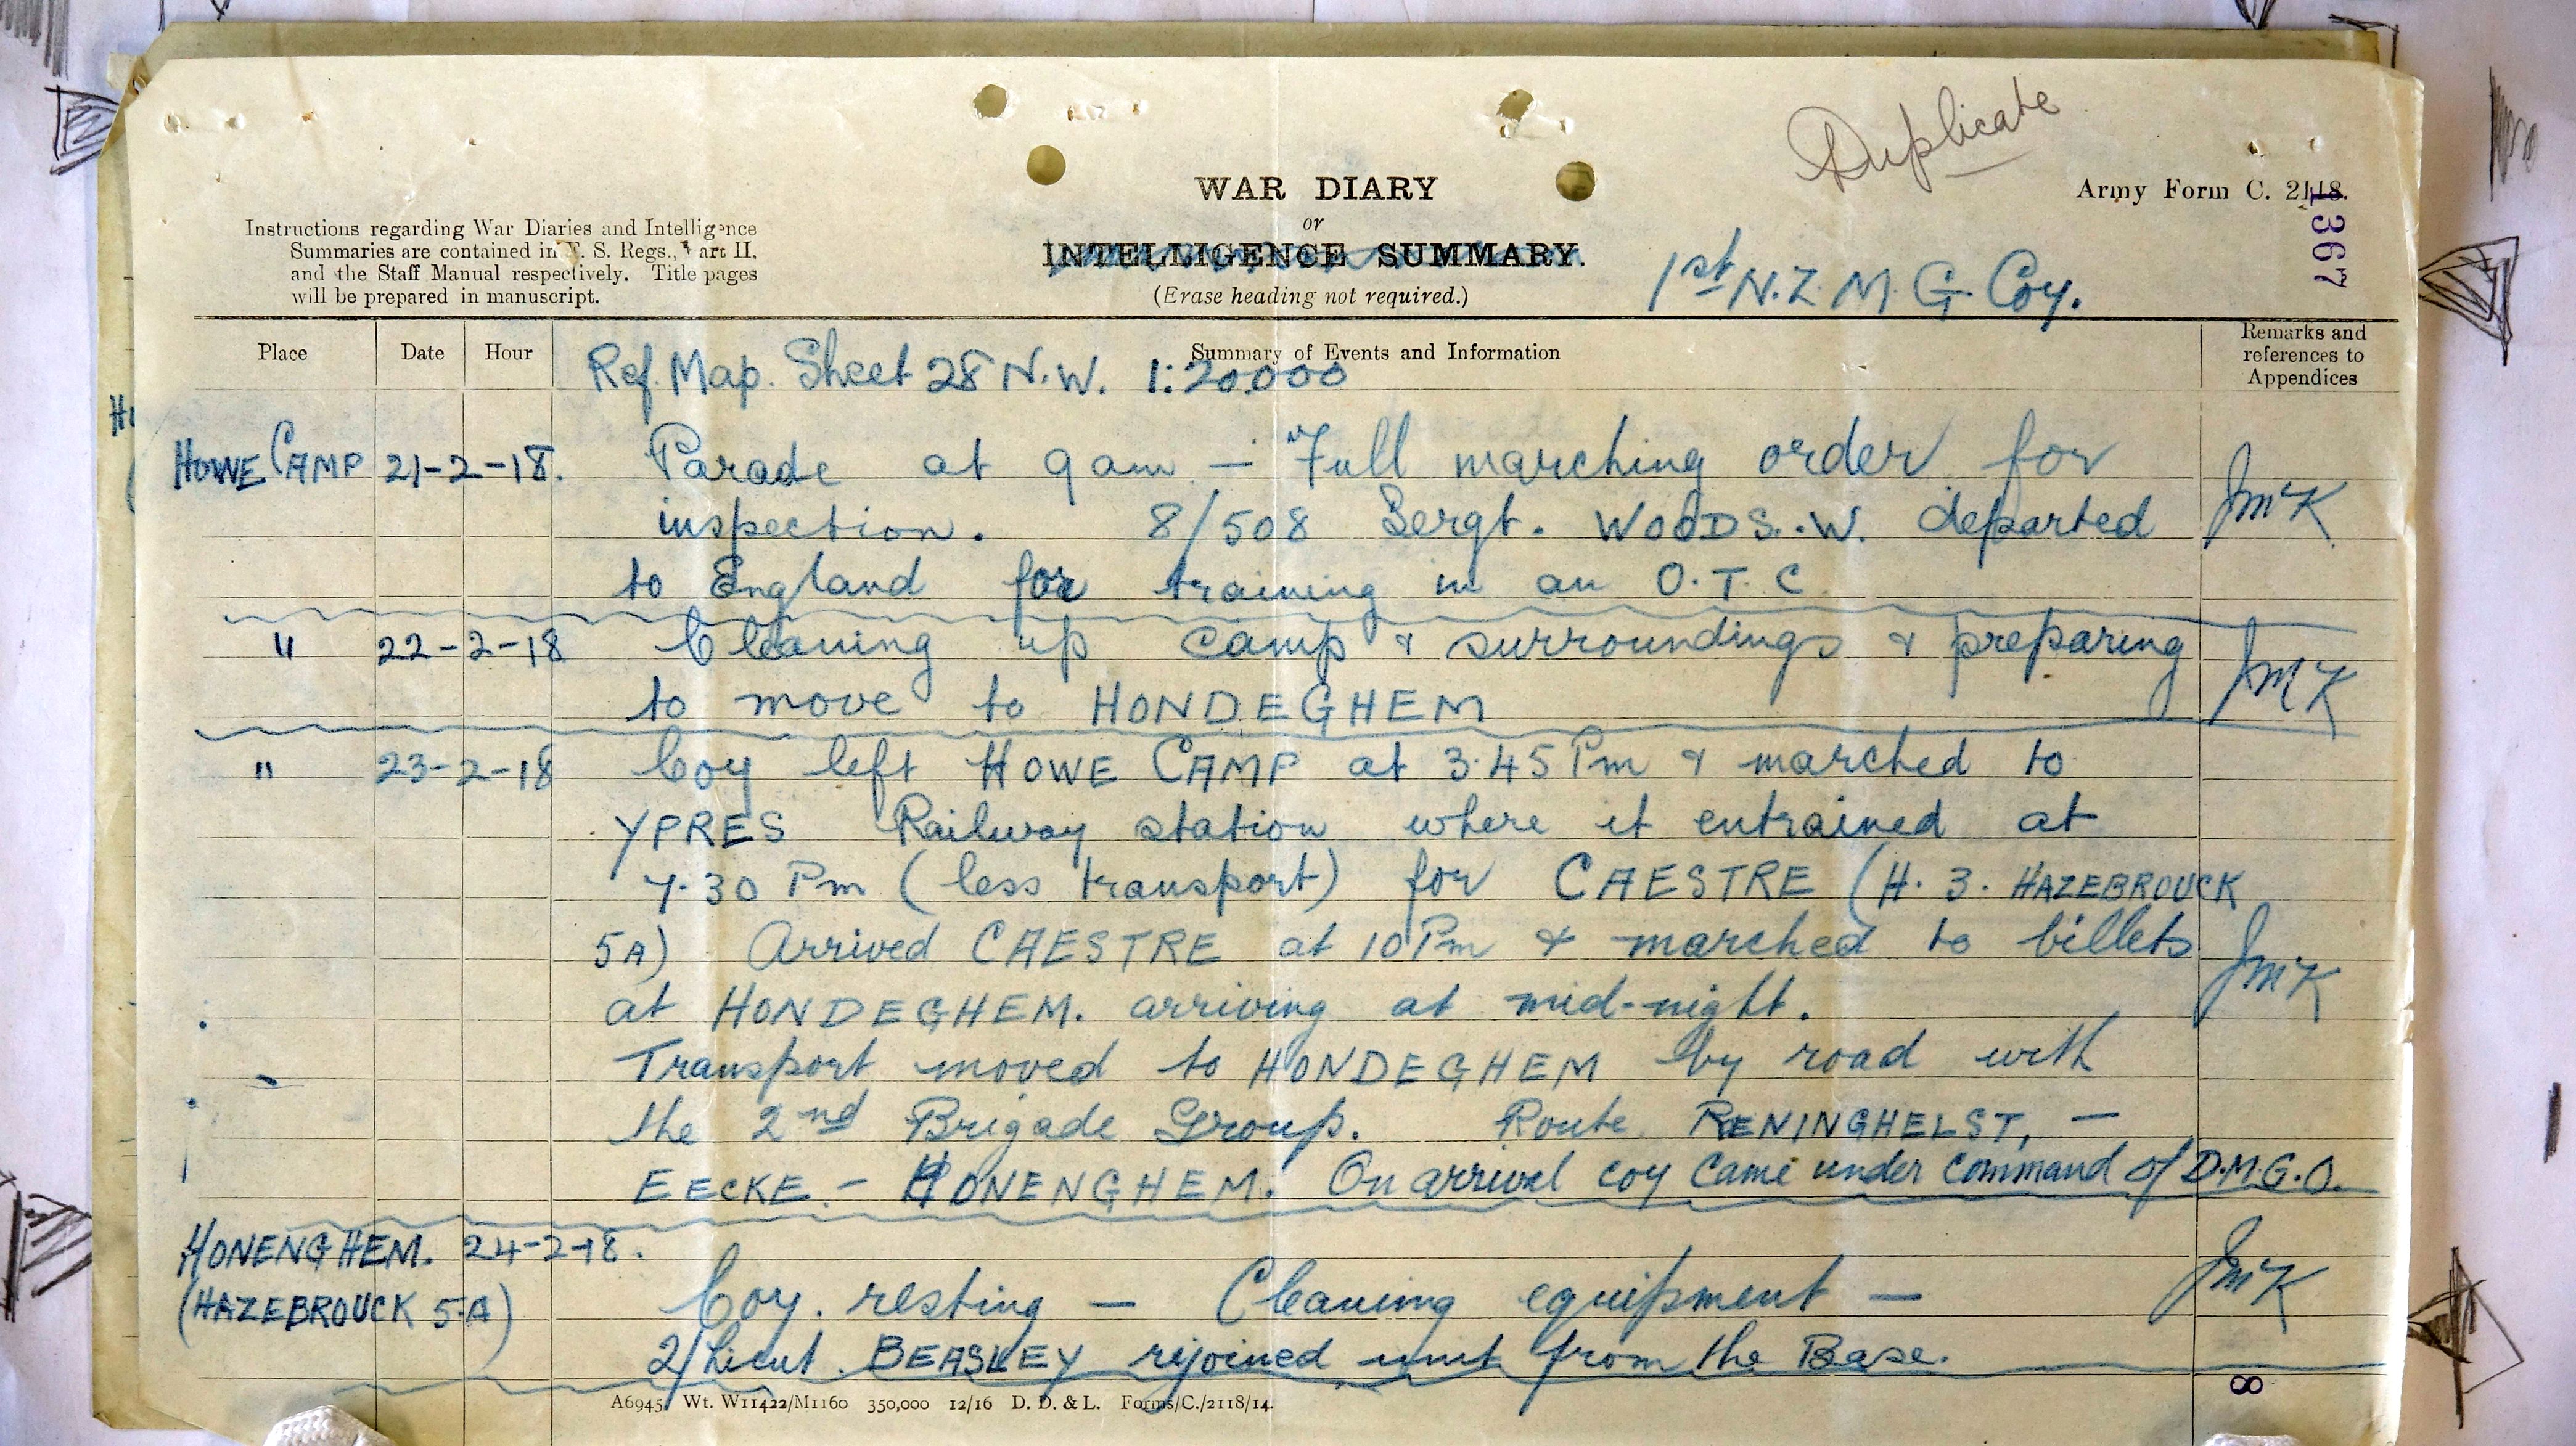 Duplicate
WAR DIARY
or
INTELLIGENCE SUMMARY.
(Erase heading not required.)
Army Form C. 2118.
1367
Instructions regarding War Diaries and Intelligence
Summaries are contained in F. S. Regs., Part II,
and the Staff Manual respectively. Title pages
will be prepared in manuscript.
1st N.Z. M. G. Coy.
Place Date Hour Summary of Events and Information Remarks and
references to
Appendices
Ref. Map. Sheet 28 N.W. 1:20000
HOWE CAMP 21-2-18. Parade at 9 am — Full marching order for
inspection. 8/508 Sergt. WOODS. W. departed JMcK
to England for training in an O.T.C
" 22-2-18 Cleaning up camp & surroundings & preparing
to move to HONDEGHEM JMcK
" 23-2-18 Coy left HOWE CAMP at 3.45 Pm & marched to
YPRES Railway station where it entrained at
7.30 Pm (less transport) for CAESTRE (H. 3. HAZEBROUCK
5A) Arrived CAESTRE at 10 Pm & marched to billets
at HONDEGHEM. arriving at mid-night. JMcK
Transport moved to HONDEGHEM by road with
the 2nd Brigade Group. Route RENINGHELST, —
EECKE. — HONENGHEM. On arrival coy came under command of D.M.G.O.
HONENGHEM. 24-2-18.
(HAZEBROUCK 5A) Coy. resting — Cleaning equipment — JMcK
2/Lieut. BEASLEY rejoined unit from the Base.
A6945 Wt. W11422/M1160 350,000 12/16 D. D. & L. Forms/C./2118/14.
8